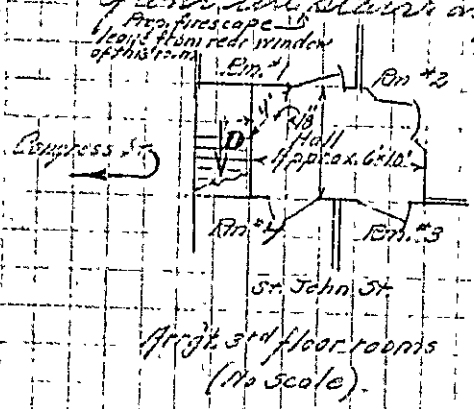 from
A fire escape
leads from rear window
of this room
Rm. #1
Rm #2
4'
18"
D
Hall
Approx. 6'x10'
Congress St.
Rm #4
Rm. #3
St. John St.
Arrg't 3rd floor rooms
(No scale)